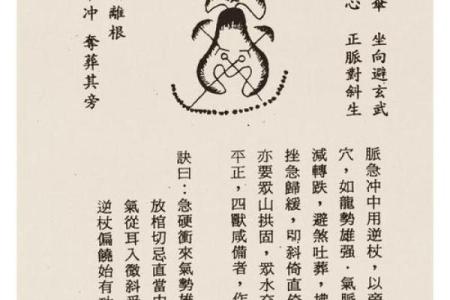 坐向避玄武
心 正脈對斜生
離根
冲 奪葬其旁
脈急冲中用逆杖，以
穴，如龍勢雄强．氣脈
減轉跌，避煞吐葬，
挫急歸緩，卽斜倚直倚
亦要眾山拱固，眾水交
平正，四獸咸備者，作
訣曰：急硬衝來氣勢雄
放棺切忌直當中
氣從耳入微斜
逆杖偏饒始有